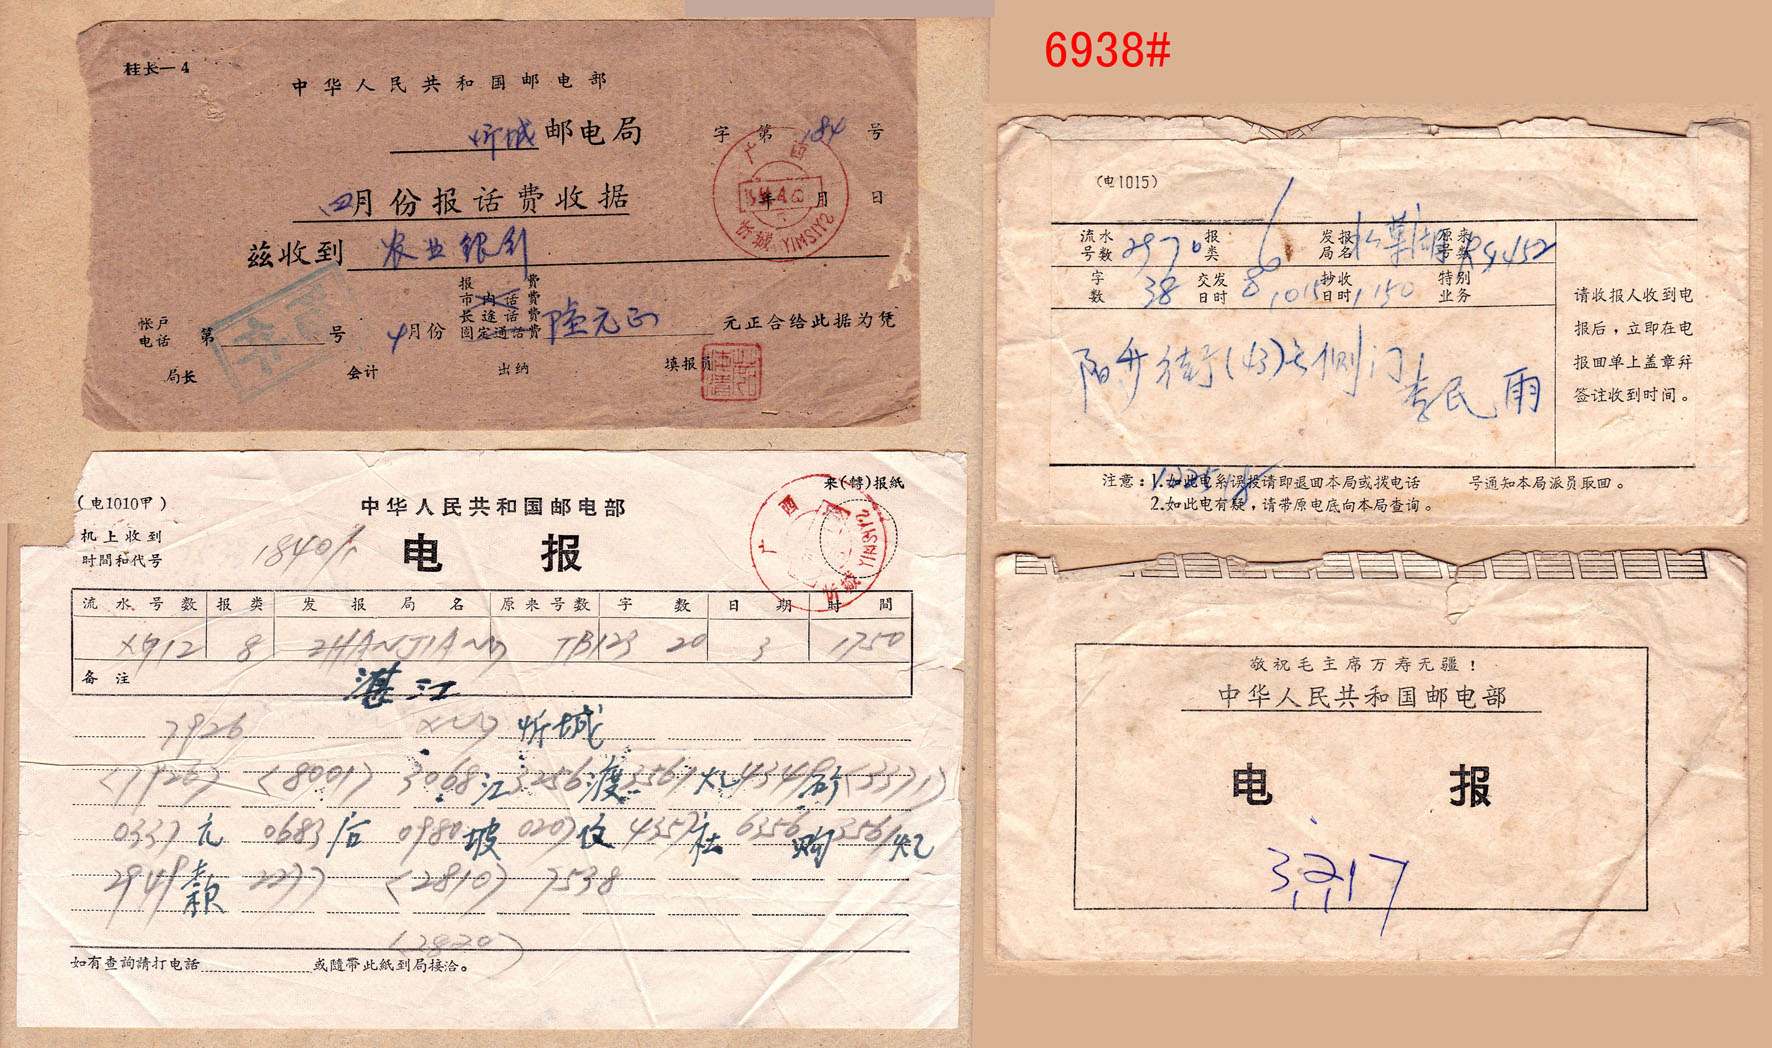 6938#
桂长—4
中华人民共和国邮电部
忻城邮电局 字第184号
四月份报话费收据
年 月 日
广西
忻城 YINSIYZ
兹收到 农业银行
报 费
市内话费
长途话费
固定通话费
帐户
电话 第 号 4月份 陆元正 元正合给此据为凭
局长 会计 出纳 填报员
(电1010甲)
来(转)报紙
中华人民共和国邮电部
机上收到
时間和代号
1840/
电 报
广西
流水号数 报类 发报局名 原来号数 字数 日期 时間
8 ZHANJIANG TB123 20 3 1750
备注 湛江
7926 忻城
(7926) (8001) 3068江 3256渡 3561炮 4349矿 (3371)
0337元 0683后 0980坡 0207收 4357社 6356购 3561炮
2949款 2277 (2810) 7538
(2820)
如有查詢請打电話 或隨帶此紙到局接洽。
(电1015)
流水号数 2970 报类 6 发报局名 原来号数
字数 38 交发日时 8 1015 抄收日时 1150 特别业务
请收报人收到电
报后，立即在电
报回单上盖章并
签注收到时间。
阳升街(43)右侧门
李民雨
注意：1.如此电系误投请即退回本局或拨电话 号通知本局派员取回。
2.如此电有疑，请带原电底向本局查询。
敬祝毛主席万寿无疆！
中华人民共和国邮电部
电 报
3,217